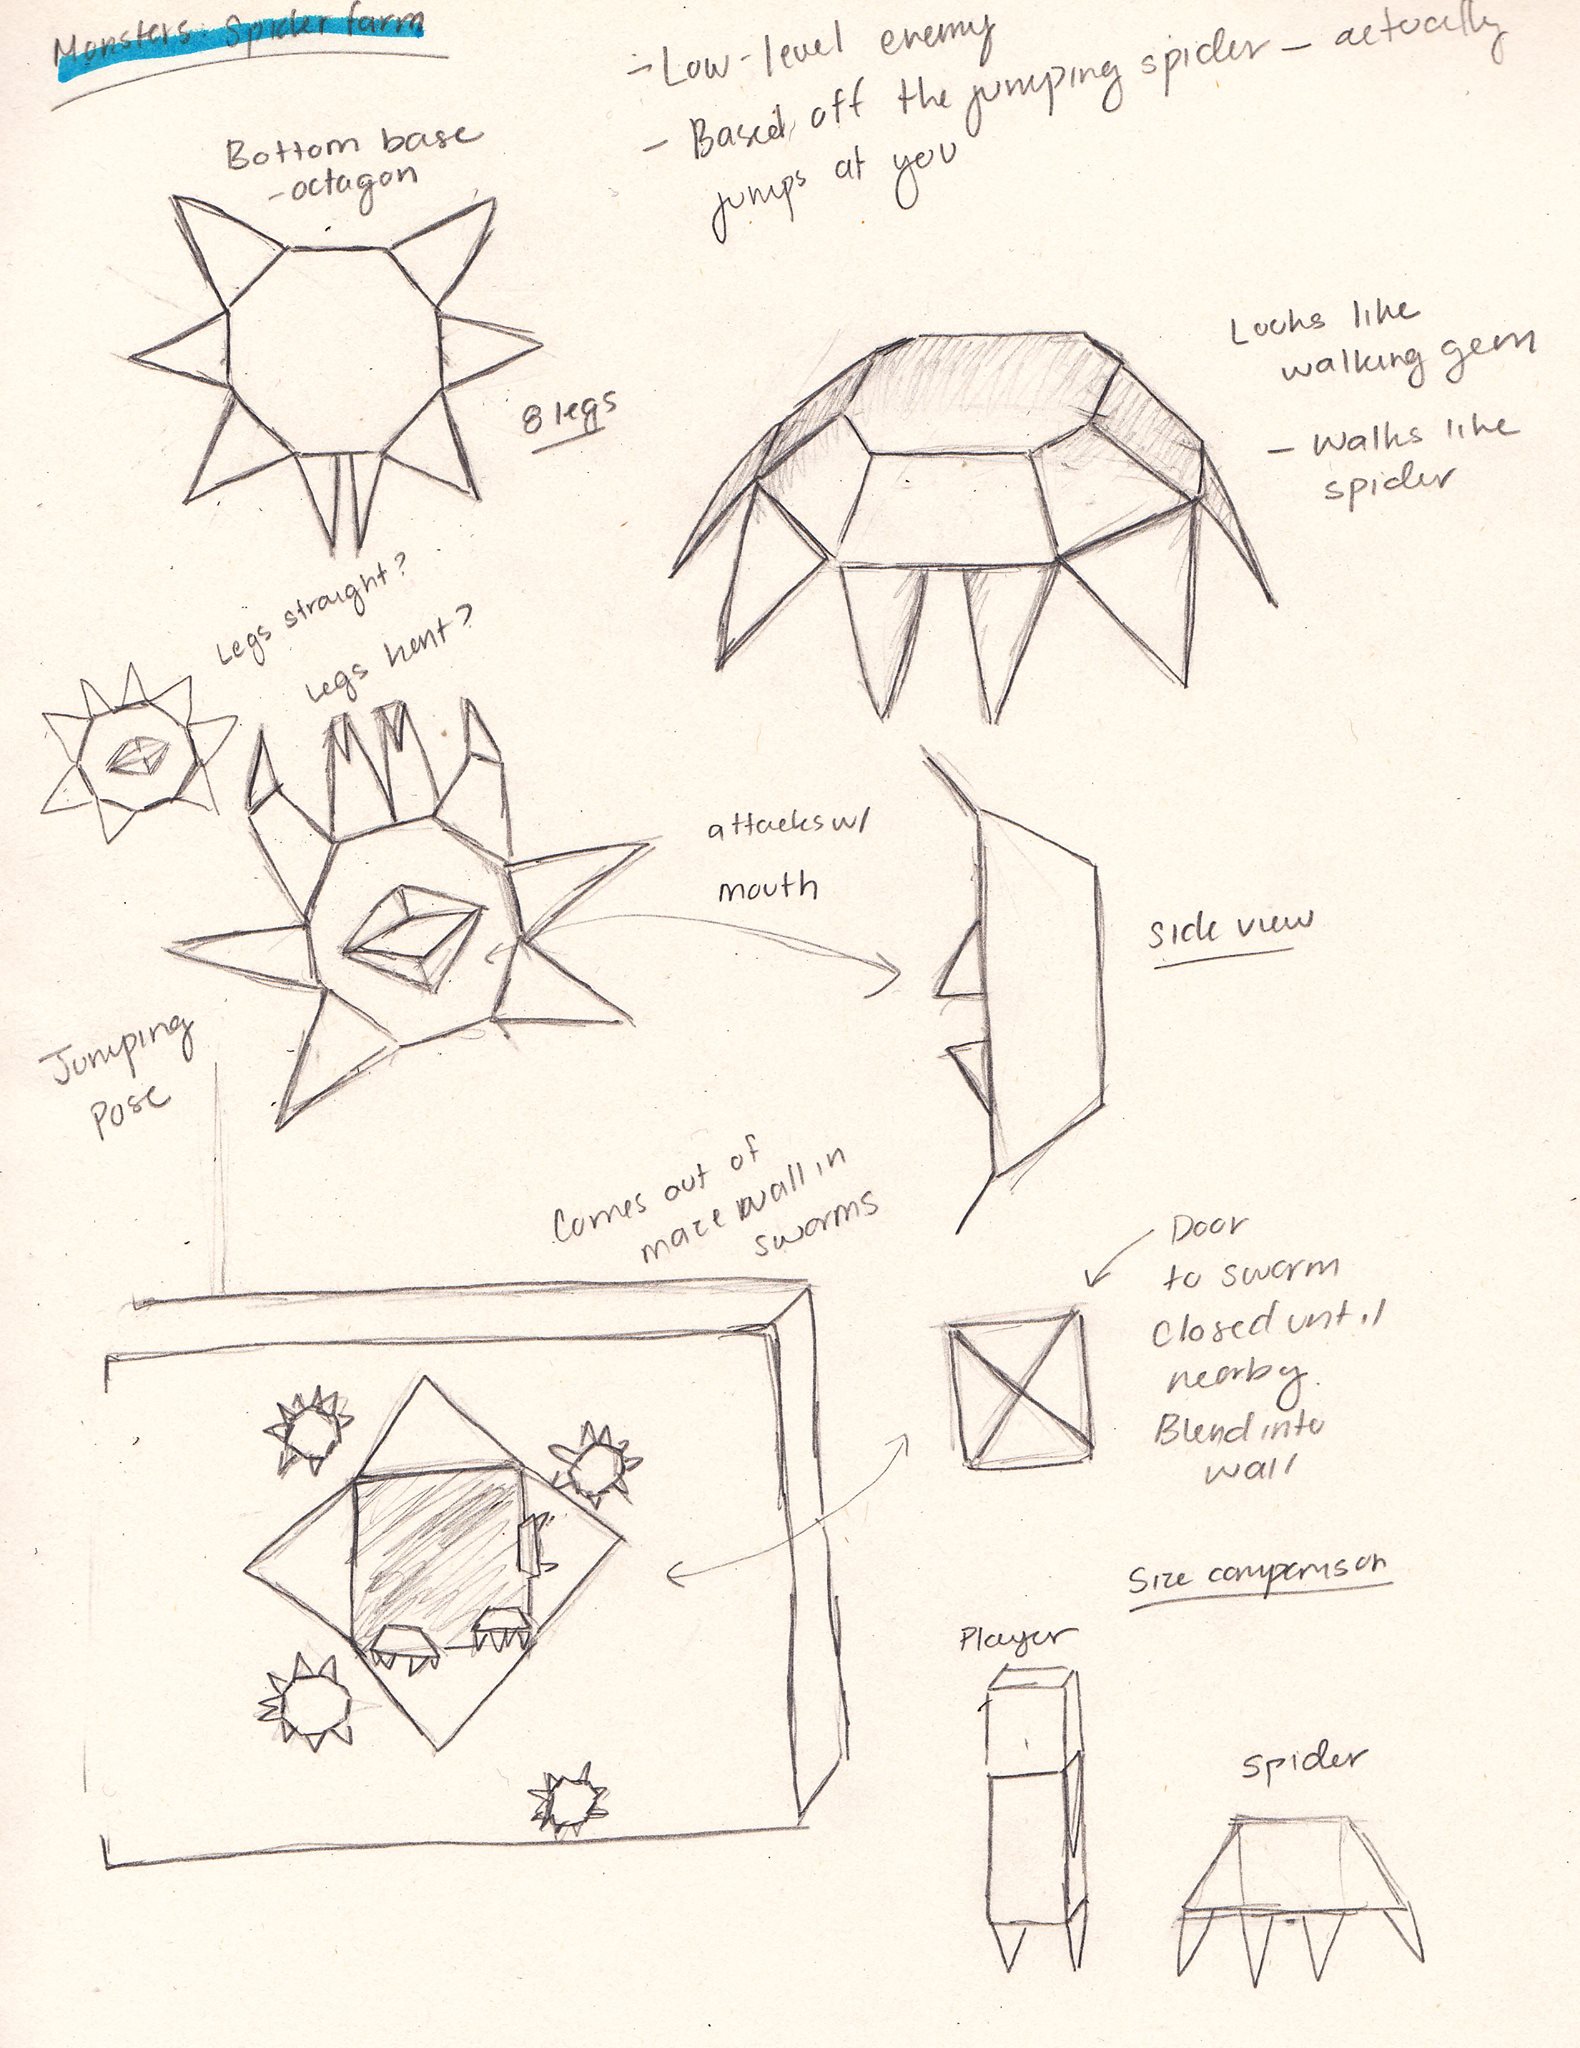 Monsters: Spider farm
- Low-level enemy
- Based off the jumping spider - actually
jumps at you
Bottom base
- octagon
8 legs
Looks like
walking gem
- Walks like
spider
Legs straight?
Legs bent?
attacks w/
mouth
Side view
Jumping
Pose
Comes out of
maze wall in
swarms
Door
to swarm
Closed until
nearby.
Blend into
wall
Size comparison
Player
Spider